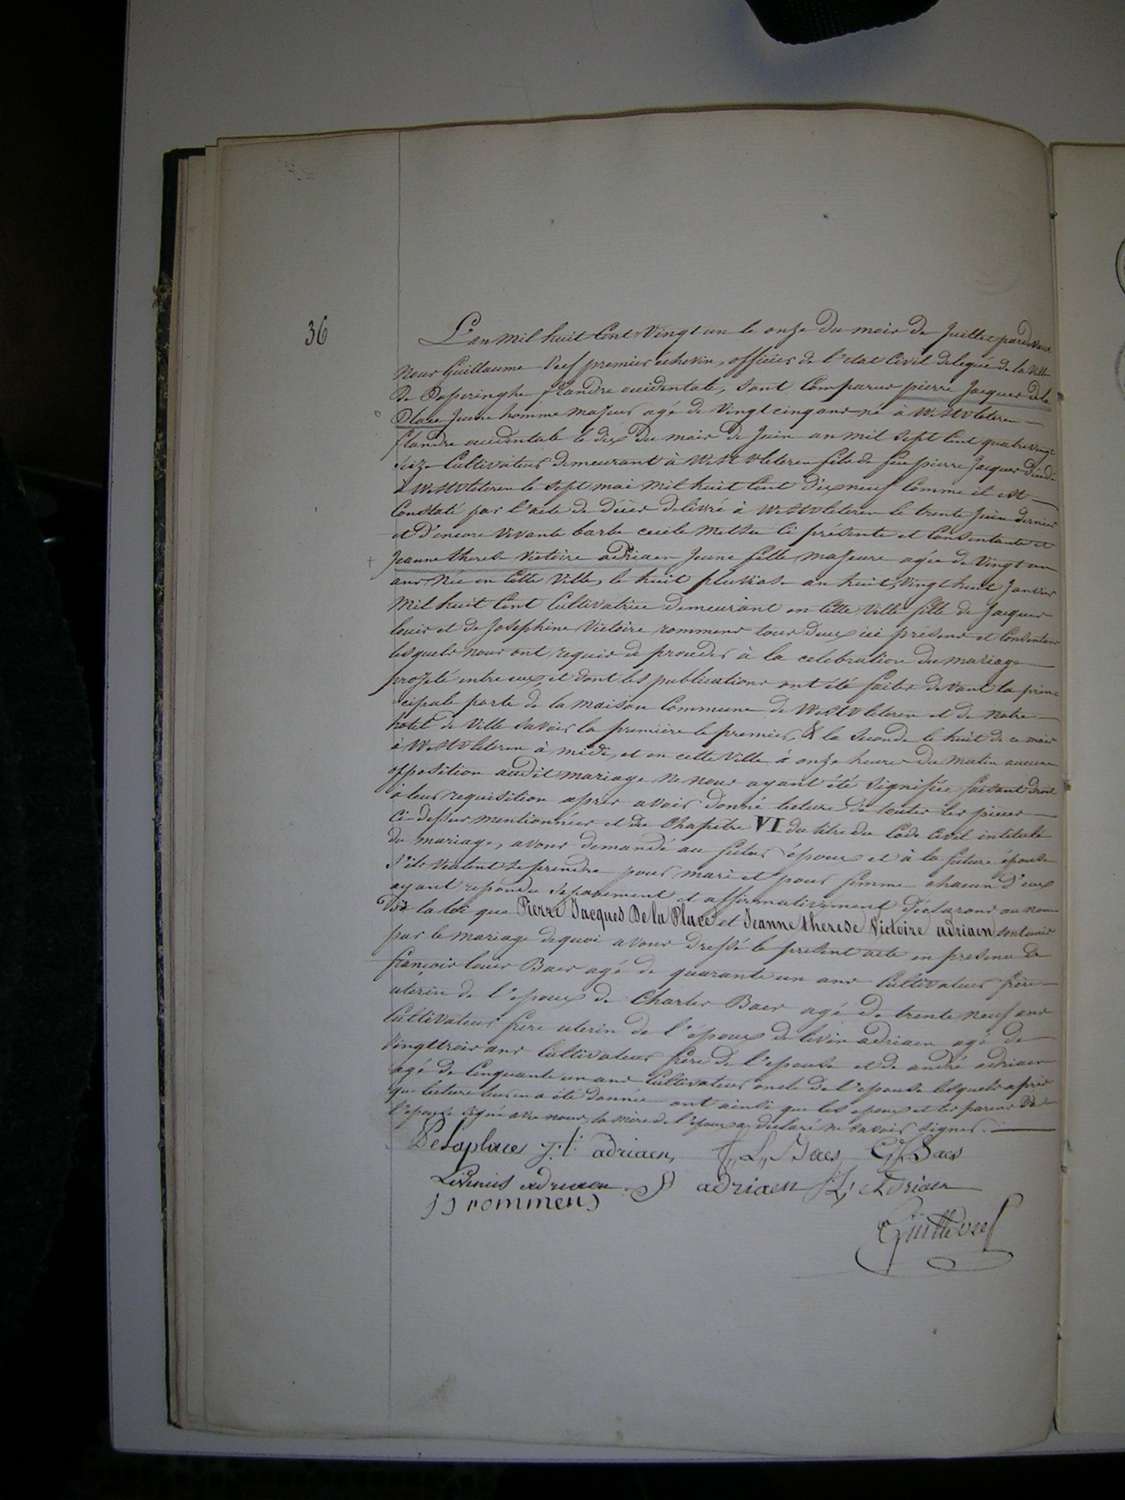 36
L'an mil huit Cent Vingt un le onze du mois de Juillet pardevant
Nous Guillaume Veef premier échevin, officier de l'état Civil delegué de la Ville
de Poperinghe flandre occidentale, Sont Comparus pierre Jacques de la
Place Jeune homme majeur agé de Vingt cinq ans né à Westvleteren
flandre occidentale le dix du mois de Juin an mil Sept Cent quatre vingt
Seize Cultivateur demeurant à Westvleteren fils de feu pierre Jacques décédé
à Westvleteren le Sept mai mil huit Cent dix neuf Comme il est
Constaté par l'acte de décès delivré à Westvleteren le trente Juin dernier
et d'encore vivante barbe cecile Metsu ici présente et Consentante et
Jeanne therese Victoire adriaen Jeune fille majeure agée de Vingt un
ans Née en Cette Ville, le huit pluviose an huit, Vingt huit Janvier
Mil huit Cent Cultivatrice demeurant en Cette Ville fille de Jacques
louis et de Josephine Victoire rommens tous deux ici présens et Consentans
lesquels nous ont requis de proceder à la celebration du mariage
projeté entre eux, et dont les publications ont été faites devant la prin
cipale porte de la maison Commune de Westvleteren et de notre
hôtel de Ville Savoir la première le premier, & la Seconde le huit de ce mois
à Westvleteren à midi, et en cette Ville à onze heures du Matin aucune
opposition audit mariage ne nous ayant été Signifiée, faisant droit
à leur requisition apres avoir donné lecture de toutes les pieces
Ci-dessus mentionnées et du Chapitre VI du titre du Code Civil intitulé
du mariage, avons demandé au futur époux et à la future épouse
S'ils veulent Se prendre pour mari et pour femme chacun d'eux
ayant repondu Separement et affirmativement déclarons au nom
de la loi que Pierre Jacques De la Place et Jeanne therese Victoire adriaen sont unis
par le mariage de quoi avons dressé le présent acte en presence de
françois louis Baes agé de quarante un ans Cultivateur frère
uterin de l'epoux de Charles Baes agé de trente neuf ans
Cultivateur frère uterin de l'époux de livin adriaen agé de
vingt trois ans Cultivateur frère de l'epouse et de andré adriaen
agé de Cinquante un ans Cultivateur oncle de l'epouse lesquels après
que lecture leur en a été donnée ont ainsi que les epoux et les parens de
l'epouse Signé avec nous, la mère de l'epoux a déclaré ne savoir signer.
Delaplace j. t. adriaen, f, L, Baes, C, Baes
Livinus adriaen adriaen J, L, Adriaen
J J rommens
Guill Veef